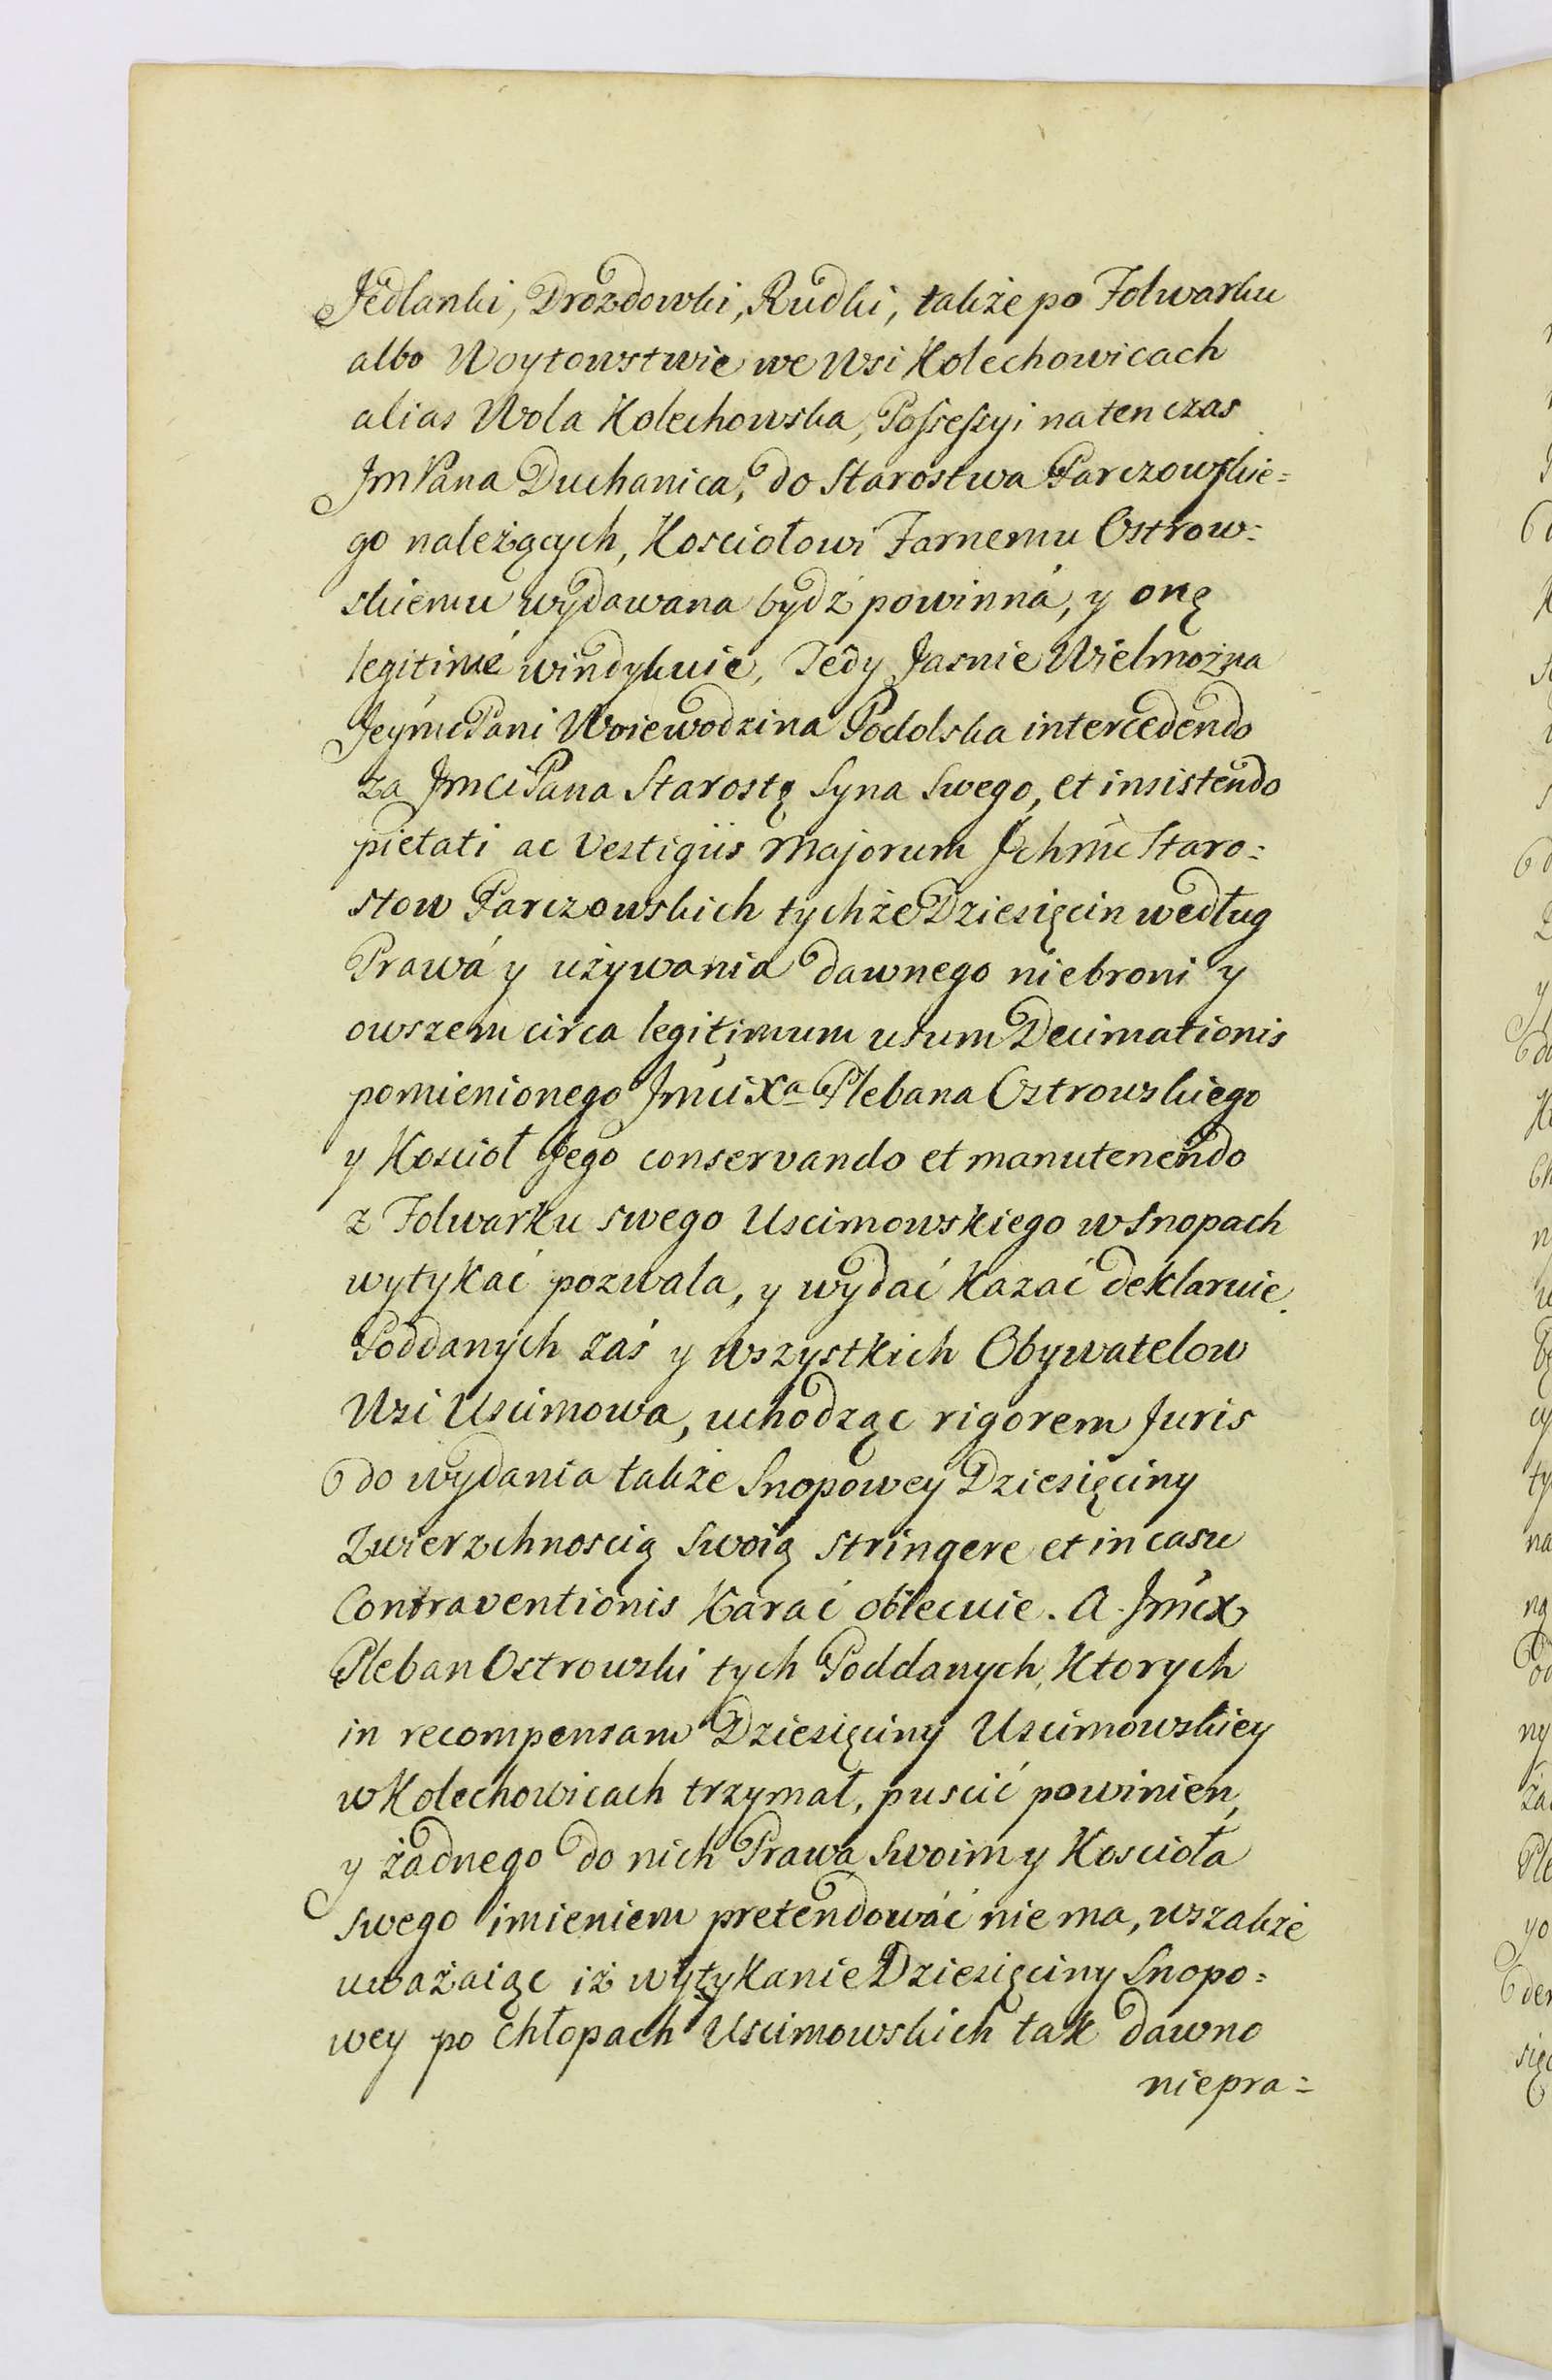 Jedlanki, Drozdowki, Rudki, także po Folwarku
albo Woytowstwie we Wsi Kolechowicach
alias Wola Kolechowska, Possessyi na ten czas
Jm Pana Duchanica, do Starostwa Parczowskie=
go należących, Kosciołowi Farnemu Ostrow=
skiemu wydawana bydź powinná, y onę
legitimé windykuie, Tedy Jasnie Wielmożna
Jeymć Pani Woiewodzina Podolska intercedendo
za Jmci Pana Starostę Syna Swego, et insistendo
pietati ac Vestigiis Majorum Jchmć Staro=
stow Parczowskich tychże Dziesięcin według
Prawá y używania dawnego niebroni y
owszem circa legitimum usum Decimationis
pomienionego Jmci Xa Plebana Ostrowskiego
y Koscioł Jego conservando et manutenendo
z Folwarku swego Uscimowskiego w Snopach
wytykać pozwala, y wydać kazać deklaruie.
Poddanych zaś y wszystkich Obywatelow
Wsi Uscimowa, uchodząc rigorem Juris
do wydania także Snopowey Dziesięciny
Zwierzchnoscią Swoią stringere et in casu
Contraventionis karać obiecuie. A Jmć X
Pleban Ostrowski tych Poddanych, ktorych
in recompensam Dziesięciny Uscimowskiey
w Kolechowicach trzymał, puscić powinien,
y żadnego do nich Prawa Swoim y Kościoła
swego imieniem pretendowáć nie ma, wszakże
uważaiąc iż wytykanie Dziesięciny Snopo=
wey po chłopach Uscimowskich tak dawno
niepra=